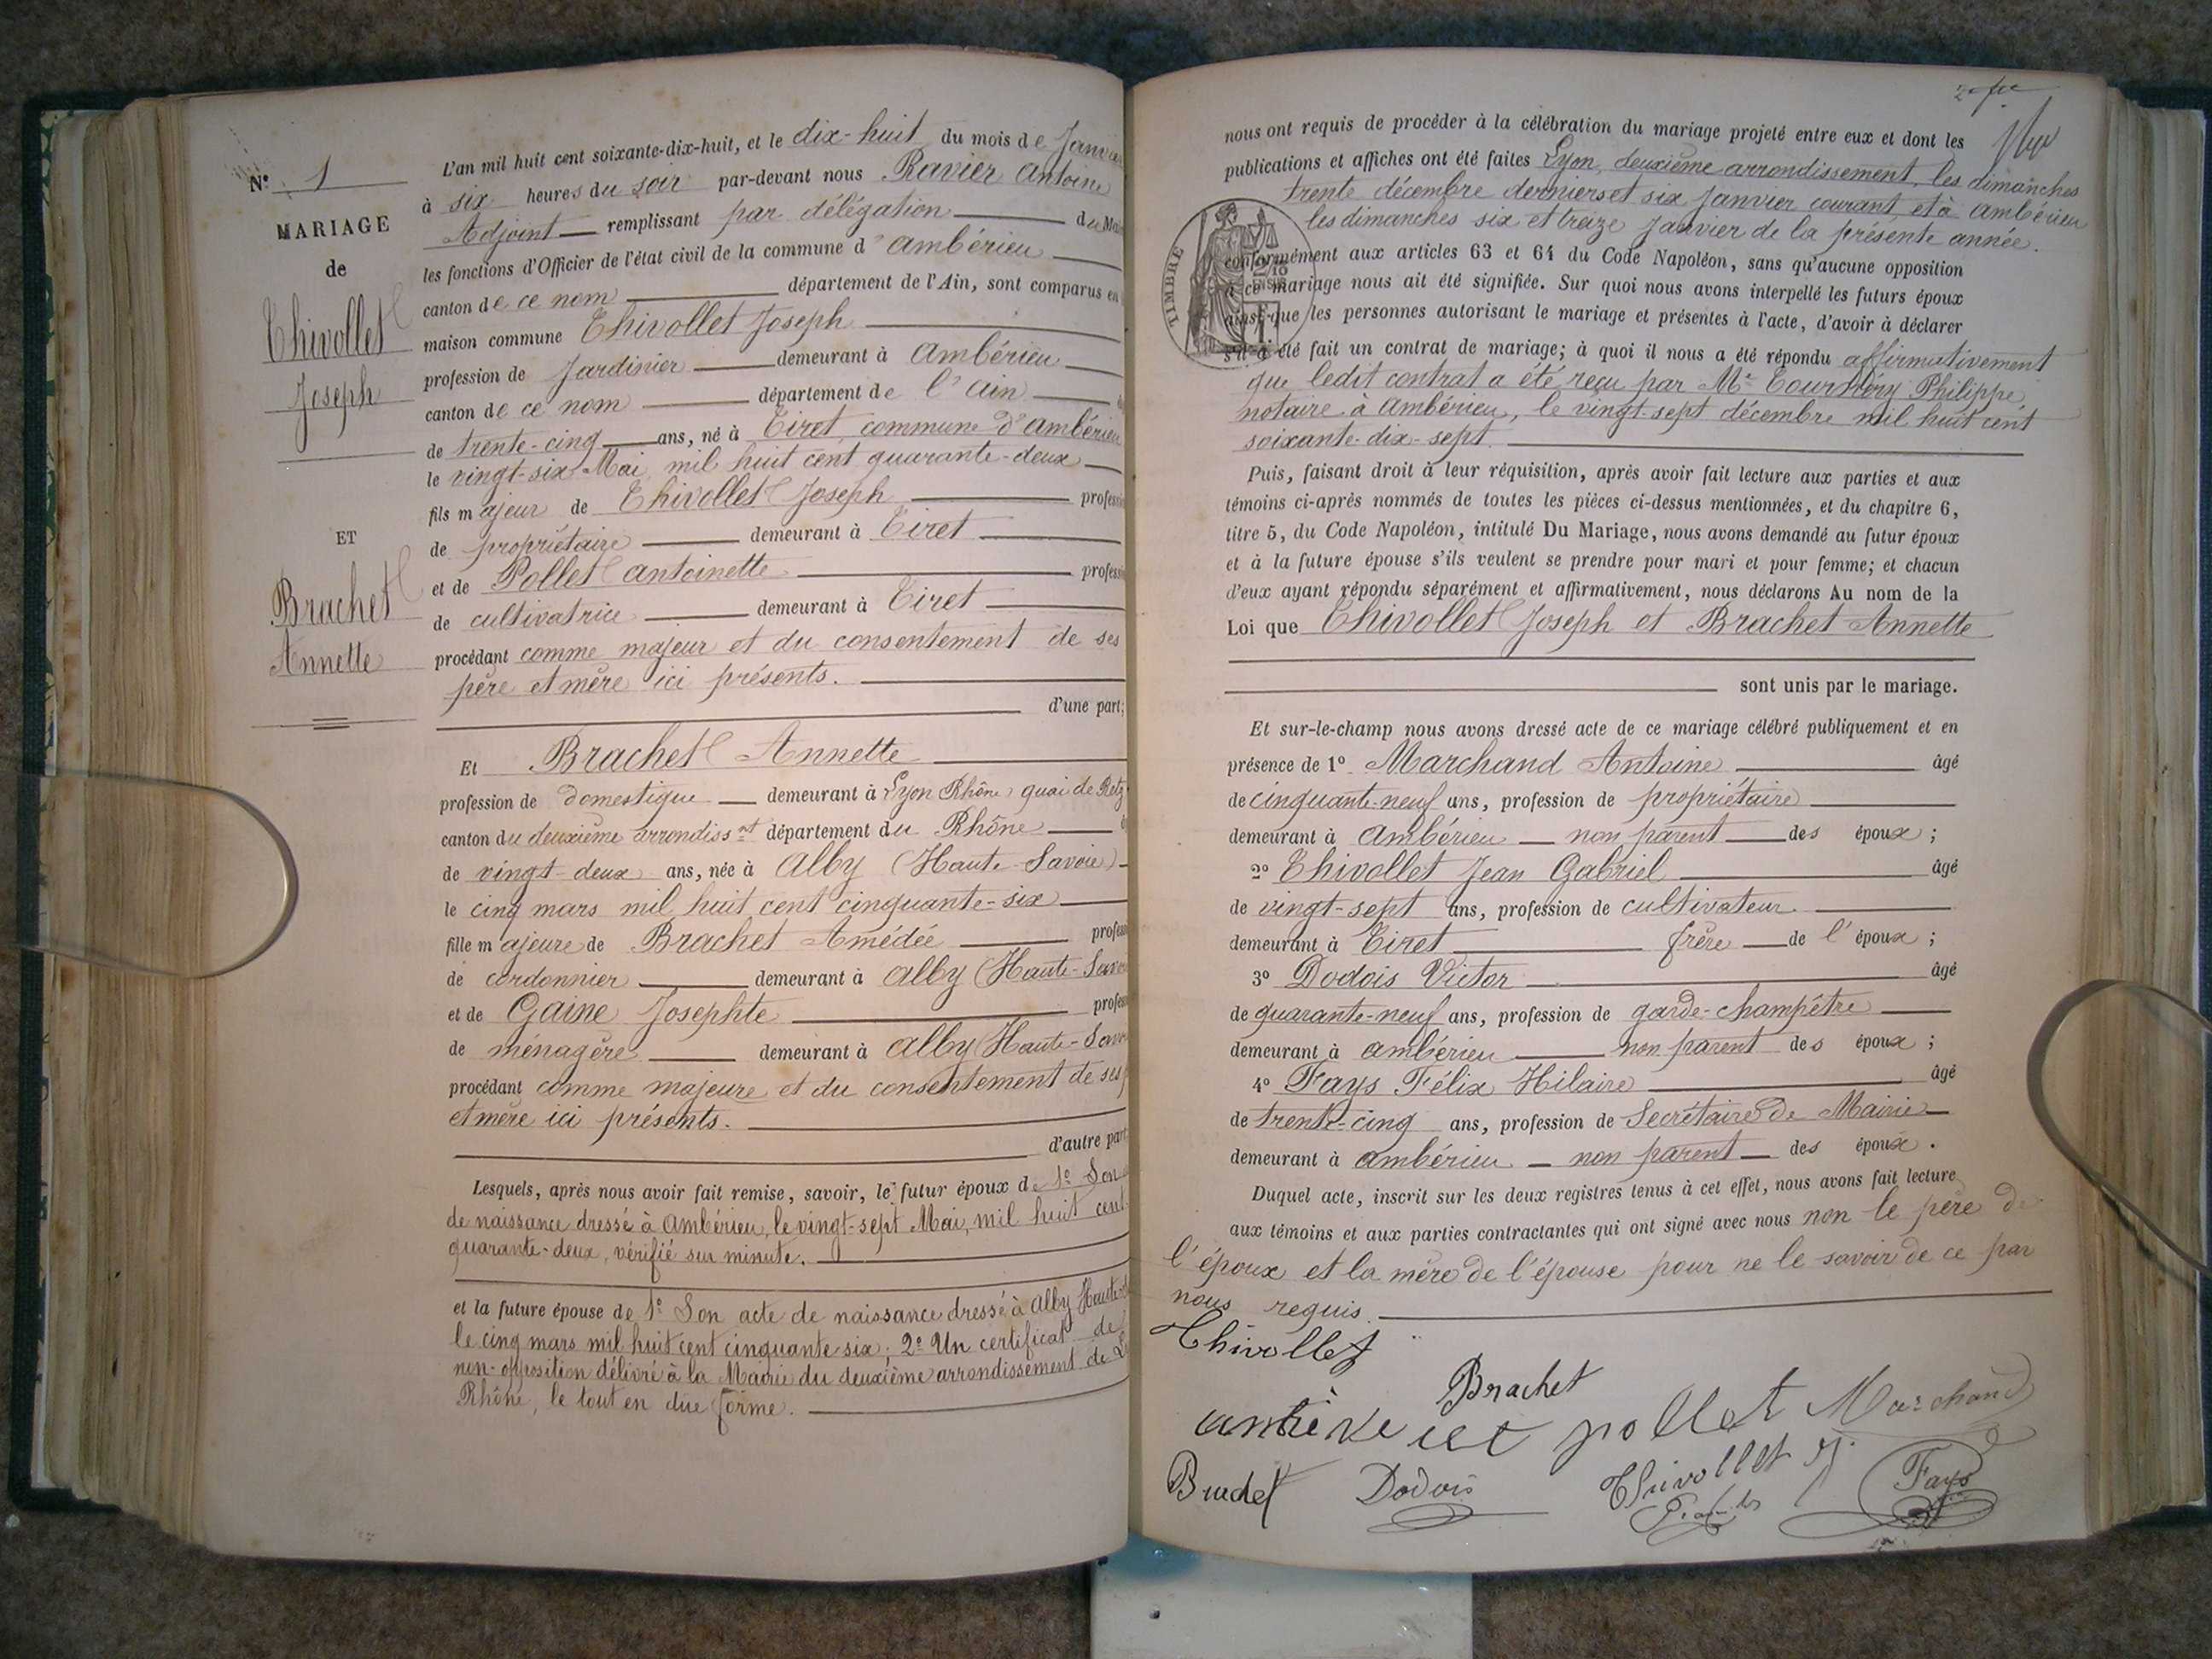 N° 1
MARIAGE
de
Thivollet
Joseph
ET
Brachet
Annette
L'an mil huit cent soixante-dix-huit, et le dix-huit du mois de Janvier
à six heures du soir par-devant nous Ravier Antoine
Adjoint remplissant par délégation du Maire
les fonctions d'Officier de l'état civil de la commune d'Ambérieu
canton de ce nom département de l'Ain, sont comparus en
maison commune Thivollet Joseph
profession de Jardinier demeurant à Ambérieu
canton de ce nom département de l'Ain
de trente-cinq ans, né à Tiret, commune d'Ambérieu
le vingt-six Mai mil huit cent quarante-deux
fils majeur de Thivollet Joseph profession
de propriétaire demeurant à Tiret
et de Pollet Antoinette profession
de cultivatrice demeurant à Tiret
procédant comme majeur et du consentement de ses
père et mère ici présents.
d'une part;
Et Brachet Annette
profession de domestique demeurant à Lyon Rhône quai de Retz
canton du deuxième arrondiss.nt département du Rhône
de vingt-deux ans, née à Alby (Haute-Savoie)
le cinq mars mil huit cent cinquante-six
fille majeure de Brachet Amédée profession
de cordonnier demeurant à Alby (Haute-Savoie
et de Gaine Josephte profession
de ménagère demeurant à Alby (Haute-Savoie
procédant comme majeure et du consentement de ses
et mère ici présents.
d'autre part
Lesquels, après nous avoir fait remise, savoir, le futur époux de 1° Son
de naissance dressé à Ambérieu, le vingt-sept Mai, mil huit cent
quarante-deux, vérifié sur minute.
et la future épouse de 1° Son acte de naissance dressé à Alby Haute-
le cinq mars mil huit cent cinquante six; 2° Un certificat de
non-opposition délivré à la Mairie du deuxième arrondissement de
Rhône, le tout en due forme.
nous ont requis de procéder à la célébration du mariage projeté entre eux et dont les
publications et affiches ont été faites Lyon, deuxième arrondissement, les dimanches
trente décembre derniers et six Janvier courant, et à Ambérieu
les dimanches six et treize Janvier de la présente année.
TIMBRE
conformément aux articles 63 et 64 du Code Napoléon, sans qu'aucune opposition
à ce mariage nous ait été signifiée. Sur quoi nous avons interpellé les futurs époux
ainsi que les personnes autorisant le mariage et présentes à l'acte, d'avoir à déclarer
s'il a été fait un contrat de mariage; à quoi il nous a été répondu affirmativement
que ledit contrat a été reçu par Me Tournéry Philippe,
notaire à Ambérieu, le vingt-sept décembre mil huit cent
soixante-dix-sept.
Puis, faisant droit à leur réquisition, après avoir fait lecture aux parties et aux
témoins ci-après nommés de toutes les pièces ci-dessus mentionnées, et du chapitre 6,
titre 5, du Code Napoléon, intitulé Du Mariage, nous avons demandé au futur époux
et à la future épouse s'ils veulent se prendre pour mari et pour femme; et chacun
d'eux ayant répondu séparément et affirmativement, nous déclarons Au nom de la
Loi que Thivollet Joseph et Brachet Annette
sont unis par le mariage.
Et sur-le-champ nous avons dressé acte de ce mariage célébré publiquement et en
présence de 1° Marchand Antoine âgé
de cinquante-neuf ans, profession de propriétaire
demeurant à Ambérieu non parent des époux;
2° Thivollet Jean Gabriel âgé
de vingt-sept ans, profession de cultivateur
demeurant à Tiret frère de l'époux;
3° Dodois Victor âgé
de quarante-neuf ans, profession de garde-champêtre
demeurant à Ambérieu non parent des époux;
4° Fays Félix Hilaire âgé
de trente-cinq ans, profession de Secrétaire de Mairie
demeurant à Ambérieu non parent des époux.
Duquel acte, inscrit sur les deux registres tenus à cet effet, nous avons fait lecture
aux témoins et aux parties contractantes qui ont signé avec nous non le père de
l'époux et la mère de l'épouse pour ne le savoir de ce par
nous requis.
Thivollet
Brachet
pollet Marchand
Brachet Dodois Thivollet J. Fays